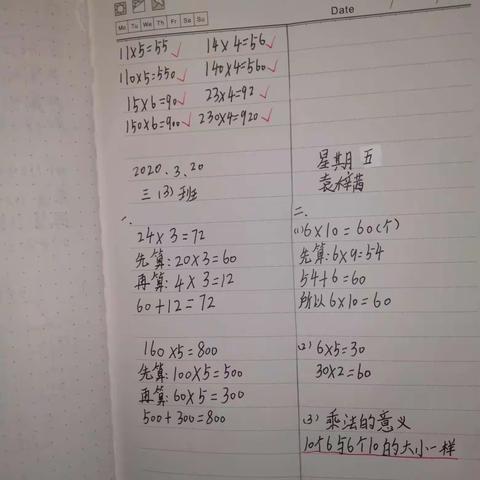 Date
Mo Tu We Th Fr Sa Su
11×5=55 ✓ 14×4=56 ✓
110×5=550 ✓ 140×4=560 ✓
15×6=90 ✓ 23×4=92 ✓
150×6=900 ✓ 230×4=920 ✓
2020.3.20
三(3)班
一、
24×3=72
先算:20×3=60
再算:4×3=12
60+12=72
160×5=800
先算:100×5=500
再算:60×5=300
500+300=800
星期五
二、
(1)6×10=60(个)
先算:6×9=54
54+6=60
所以6×10=60
(2)6×5=30
30×2=60
(3)乘法的意义
10个6与6个10的大小一样